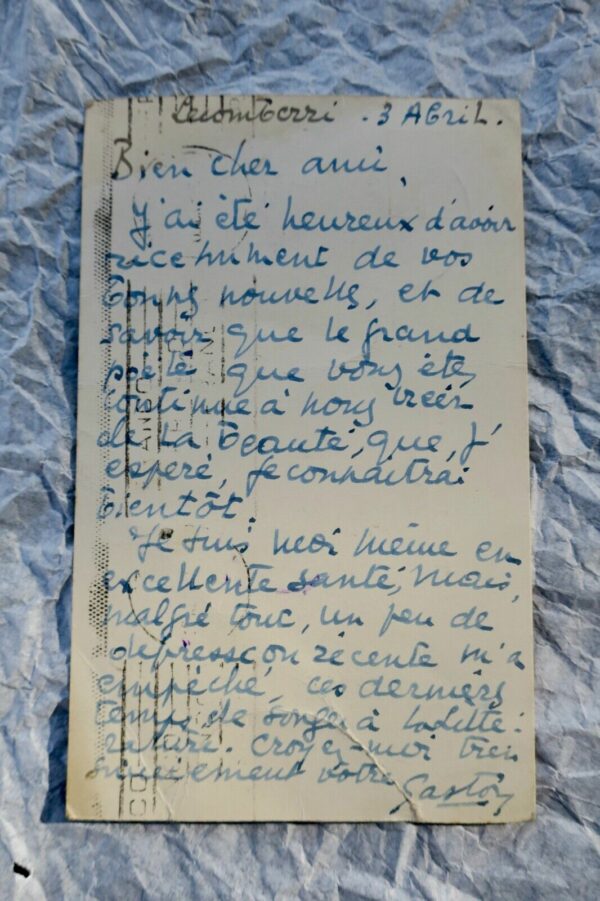 Lecomberri - 3 Abril.
Bien cher ami,
J'ai été heureux d'avoir
récemment de vos
bonnes nouvelles, et de
savoir que le grand
poète que vous êtes
continue à nous créer
de la beauté, que, j'
esperé, je connaîtrai
bientôt.
Je suis moi même en
excellente santé, mais,
malgré tout, un peu de
dépression récente m'a
empéché, ces derniers
temps de songer à la litté-
rature. Croyez-moi très
sincèrement vôtre Gaston